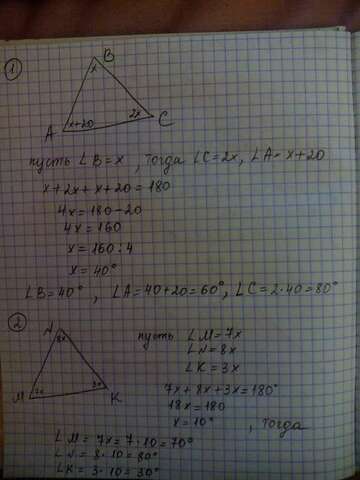 1
B
x
A
x+20
2x
C
пусть ∠B = x , тогда ∠C = 2x, ∠A = x+20
x+2x+x+20=180
4x=180-20
4x=160
x=160:4
x=40°
∠B=40° , ∠A=40+20=60°, ∠C=2·40=80°
2
N
8x
M
7x
3x
K
пусть ∠M=7x
∠N=8x
∠K=3x
7x+8x+3x=180°
18x=180
x=10° , тогда
∠M=7x=7·10=70°
∠N=8·10=80°
∠K=3·10=30°